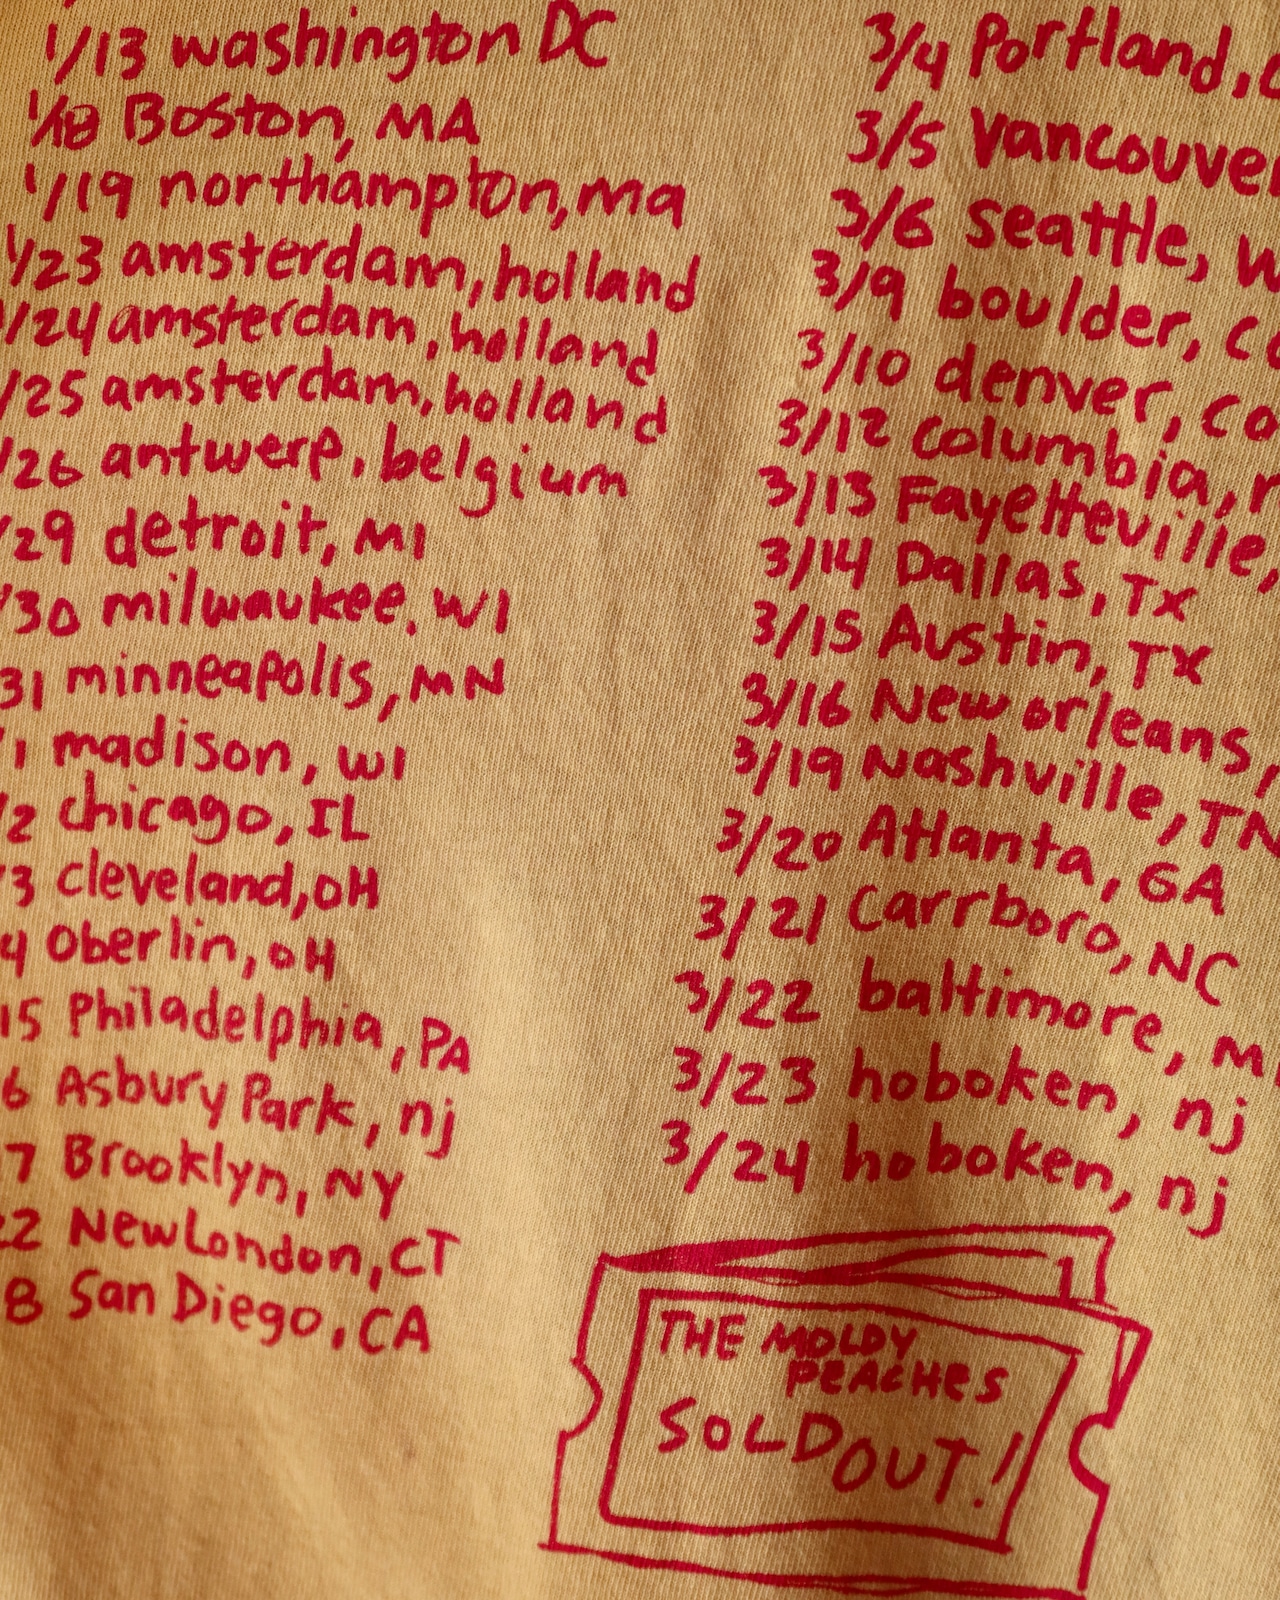 1/13 washington DC
1/18 Boston, MA
1/19 northampton, ma
1/23 amsterdam, holland
/24 amsterdam, holland
/25 amsterdam, holland
/26 antwerp, belgium
/29 detroit, MI
/30 milwaukee, WI
31 minneapolis, MN
/1 madison, WI
/2 chicago, IL
/3 cleveland, OH
4 Oberlin, OH
15 Philadelphia, PA
6 Asbury Park, nj
7 Brooklyn, NY
22 New London, CT
8 San Diego, CA
3/4 Portland,
3/5 Vancouve
3/6 seattle, W
3/9 boulder, co
3/10 denver, co
3/12 columbia,
3/13 Fayetteville,
3/14 Dallas, TX
3/15 Austin, TX
3/16 New orleans,
3/19 Nashville, TN
3/20 Atlanta, GA
3/21 Carrboro, NC
3/22 baltimore, M
3/23 hoboken, nj
3/24 hoboken, nj
THE MOLDY
PEACHES
SOLD OUT!